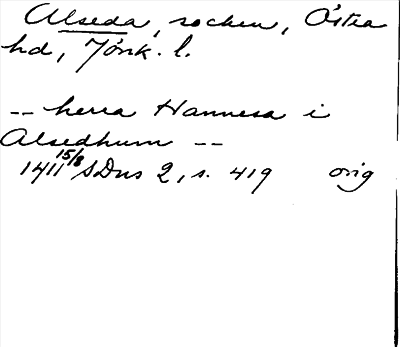 Alseda, socken, Östra
hd, Jönk. l.
-- herra Hannesa i
Alsedhum --
1411 15/8 SDns 2, s. 419 orig